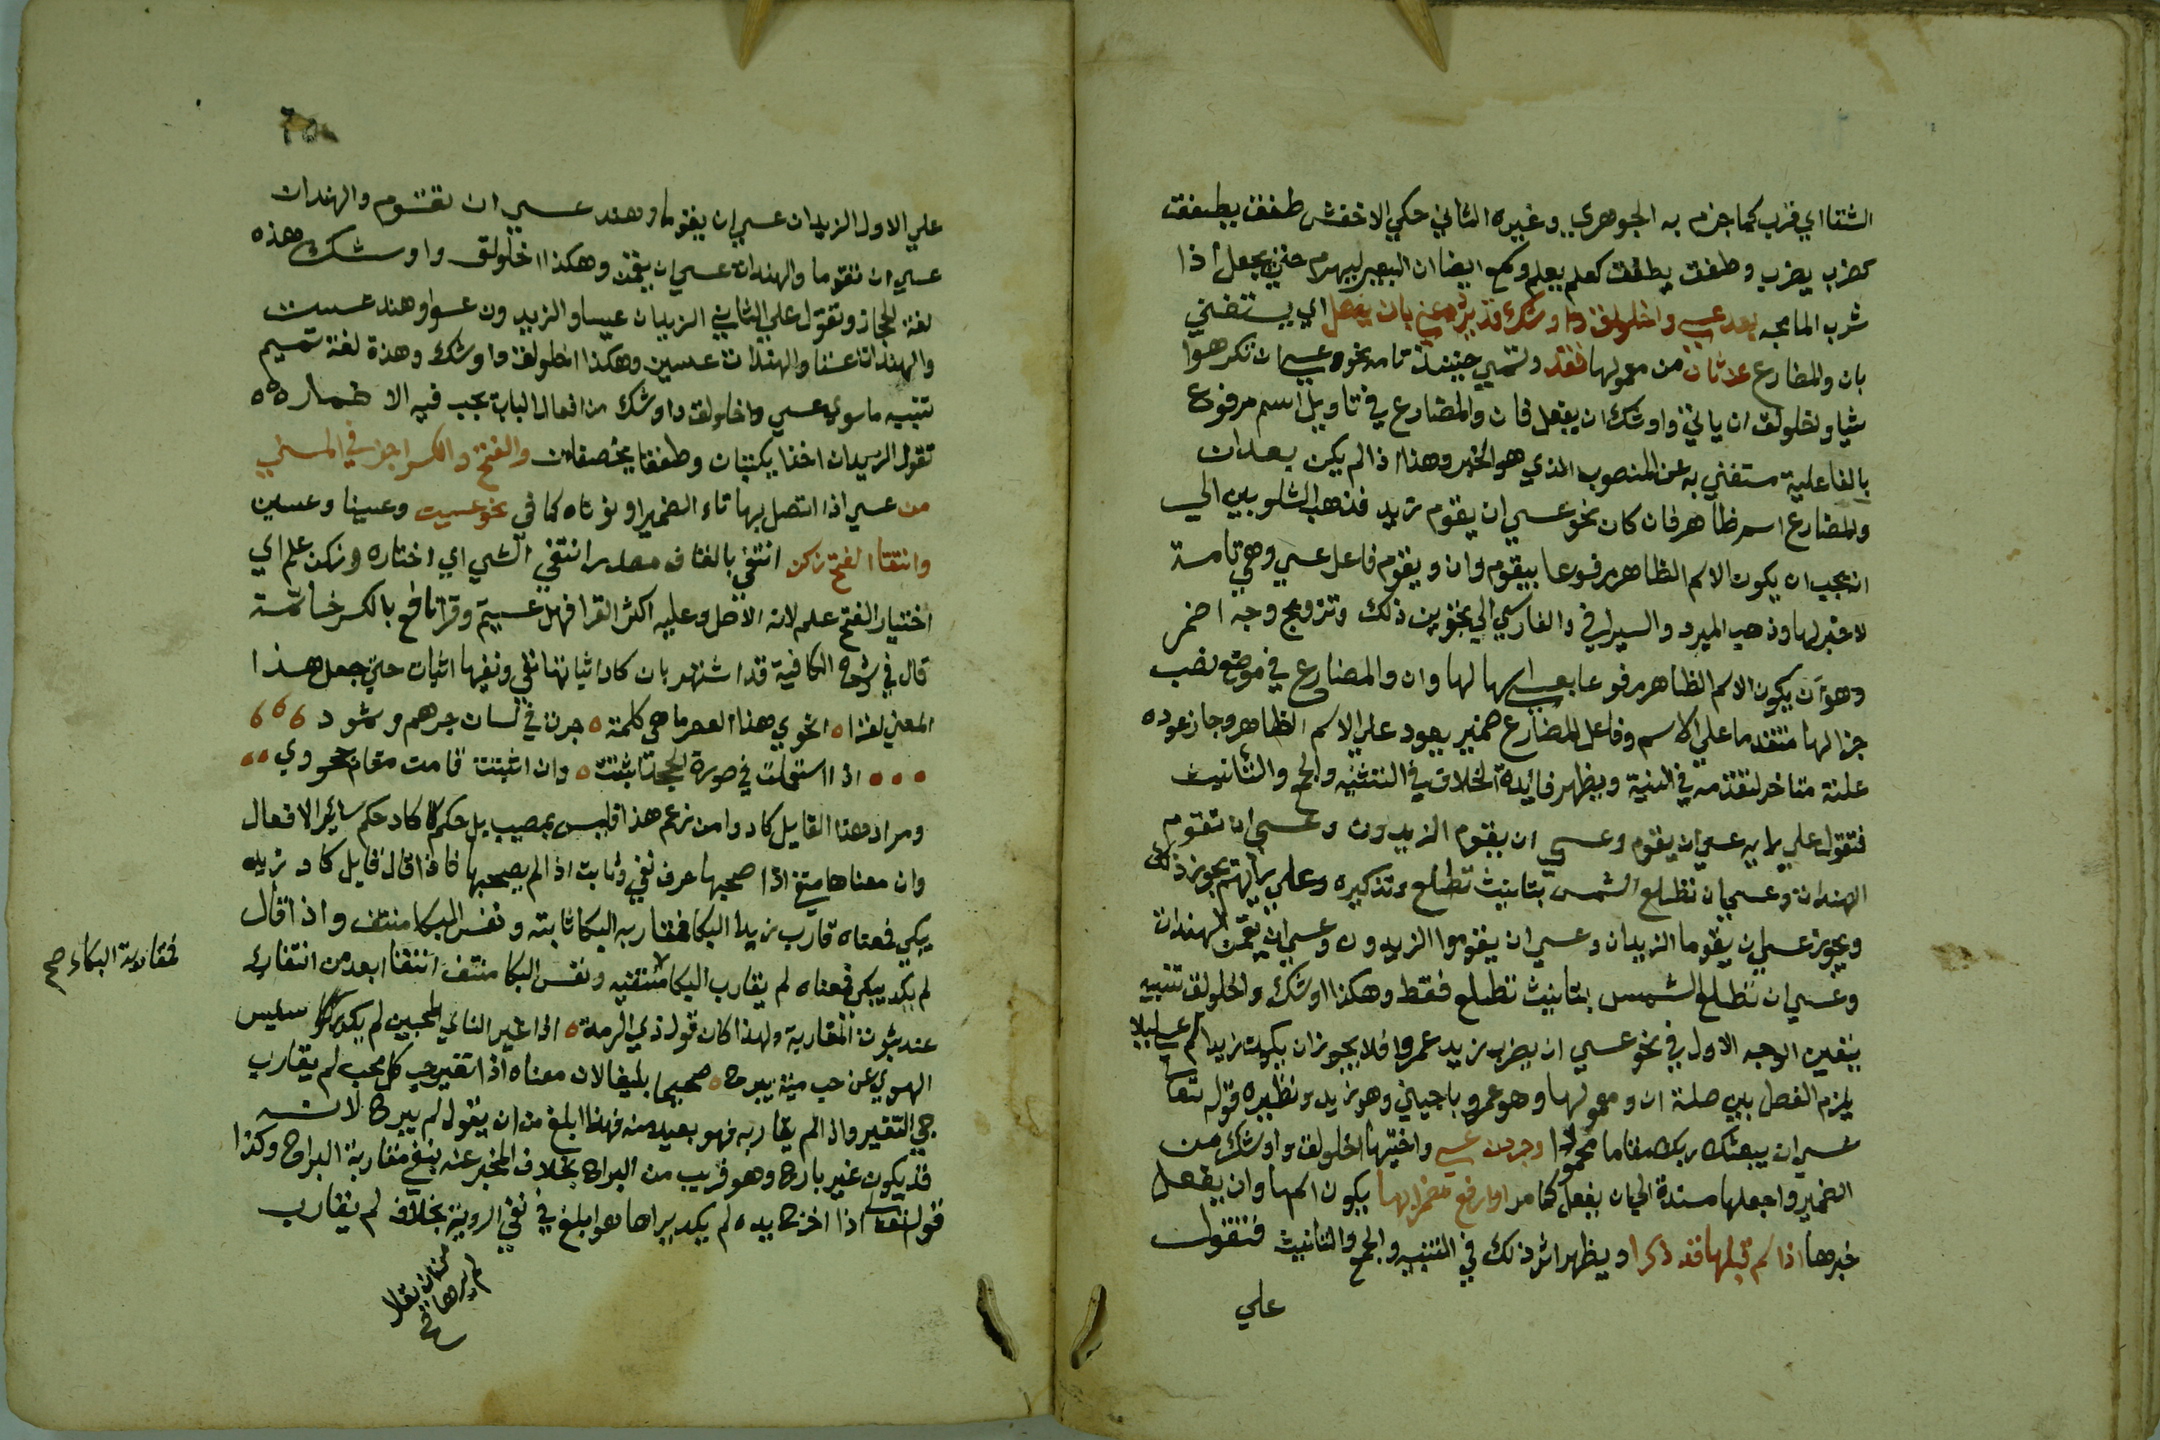 الشتا اي قرب كما جزم به الجوهري وغيره الثاني حكي الاخفش طفق يطفق
كضرب يضرب وطفق يطفق كعلم يعلم وسمع ايضا ان البعير ليهرم حتي يجعل اذا
شرب الما مجه بعد عسي واخلولق واوشك قد يرد غني بان يفعل اي يستغني
بان والمضارع عن ثان من معمولها فقد وتسمي حينئذ تامه نحو وعسي ان تكرهوا
شيا واخلولق ان ياتي واوشك ان يفعل فان والمضارع في تاويل اسم مرفوع
بالفاعلية مستغني به عن المنصوب الذي هو الخبر وهذا اذا لم يكن بعد ان
والمضارع اسم ظاهر فان كان نحو عسي ان يقوم زيد فذهب الشلوبين الي
انه يجب ان يكون الاسم الظاهر مرفوعا بيقوم وان ويقوم فاعل عسي وهي تامة
لا خبر لها وذهب المبرد والسيرافي والفارسي الي تجويز ذلك وتزويج وجه اخر
وهو ان يكون الاسم الظاهر مرفوعا بعسي اسما لها وان والمضارع في موضع نصب
خبرا لها متقدما علي الاسم وفاعل المضارع ضمير يعود علي الاسم الظاهر وجاز عوده
عليه متاخر لتقدمه في النية ويظهر فايدة الخلاف في التثنيه والجمع والتانيث
فتقول علي رايه عسي ان يقوم وعسي ان يقوم الزيدون وعسي ان تقوم
الهندات وعسي ان تطلع الشمس بتانيث تطلع وتذكيره وعلي رايهم يجوز ذلك
ويجوز عسي ان يقوما الزيدان وعسي ان يقوموا الزيدون وعسي ان يقمن الهندات
وعسي ان تطلع الشمس بتانيث تطلع فقط وهكذا اوشك واخلولق تنبيه
يتعين الوجه الاول في نحو عسي ان يضرب زيد عمروا فلا يجوز ان يكون زيد اسم عسي ليلا
يلزم الفصل بين صلة ان ومعمولها وهو عمرو باجنبي وهو زيد ونظيره قوله تعالي
عسي ان يبعثك ربك مقاما محمودا وجردن عسي واختيها اخلولق واوشك من
الضمير واجعلها مسندة الي ان يفعل كما مر او ارفع مضمرا بها يكون اسمها وان يفعل
خبرها اذا اسم قبلها قد ذكرا ويظهر اثر ذلك في التثنيه والجمع والتانيث فتقول
علي
علي الاول الزيدان عسي ان يقوما وهند عسي ان تقوم والهندان
عسي ان تقوما والهندات عسي ان يقمن وهكذا اخلولق واوشك وهذه
لغة الحجاز وتقول علي الثاني الزيدان عسيا والزيدون عسوا وهند عست
والهندان عستا والهندات عسين وهكذا اخلولق واوشك وهذة لغة تميم
تنبيه ما سوي عسي واخلولق واوشك من افعال الباب يجب فيه الاضمار ٥٥
تقول الزيدان اخذا يكتبان وطفقا يخصفان والفتح والكسر اجز في السين
من عسي اذا اتصل بها تاء الضمير او نوناه كما في نحو عسيت وعسينا وعسين
وانتقا الفتح زكن انتقي بالقاف مصدر انتقي الشي اي اختاره وزكن علم اي
اختيار الفتح علم لانه الاصل وعليه اكثر القرا فهل عسيتم وقرا نافع بالكسر خاتمة
قال في شرح الكافية قد اشتهر بان كاد اثباتها نفي ونفيها اثبات حتي جعل هذا
المعني لغزا ٥ انحوي هذا العصر ما هي كلمة ٥ جرت في لسان جرهم وثمود
اذا استعملت في صورة الجحد اثبتت ٥ وان اثبتت قامت مقام جحودي
ومراد هذا القايل كاد ومن زعم هذا فليس بمصيب بل حكم كاد حكم ساير الافعال
وان معناها منفي اذا صحبها حرف نفي وثابت اذا لم يصحبها فاذا قال قايل كاد زيد
يبكي فمعناه قارب زيد البكا فمقاربه البكا ثابته ونفس البكا منتف واذا قال
لم يكد يبكي فمعناه لم يقارب البكا منتفيه ونفس البكا منتف انتفا ابعد من انتفايه
عند ثبوت المقاربة ولهذا كان قول ذي الرمة ٥ اذا غير الناي المحبين لم يكد رسيس
الهوي عن حب مية يبرح ٥ صحيحا بليغا لان معناه اذا تغير حب كل محب لم يقارب
حبي التغير واذا لم يقاربه فهو بعيد منه فهذا ابلغ من ان يقول لم يبرح لانه
قد يكون غير بارح وهو قريب من البراح بخلاف المخبر عنه بنفي مقاربة البراح وكذا
قوله تعالي اذا اخرج يده لم يكد يراها هو ابلغ في نفي الروية بخلاف لم يقارب
فمقاربة البكاء صح